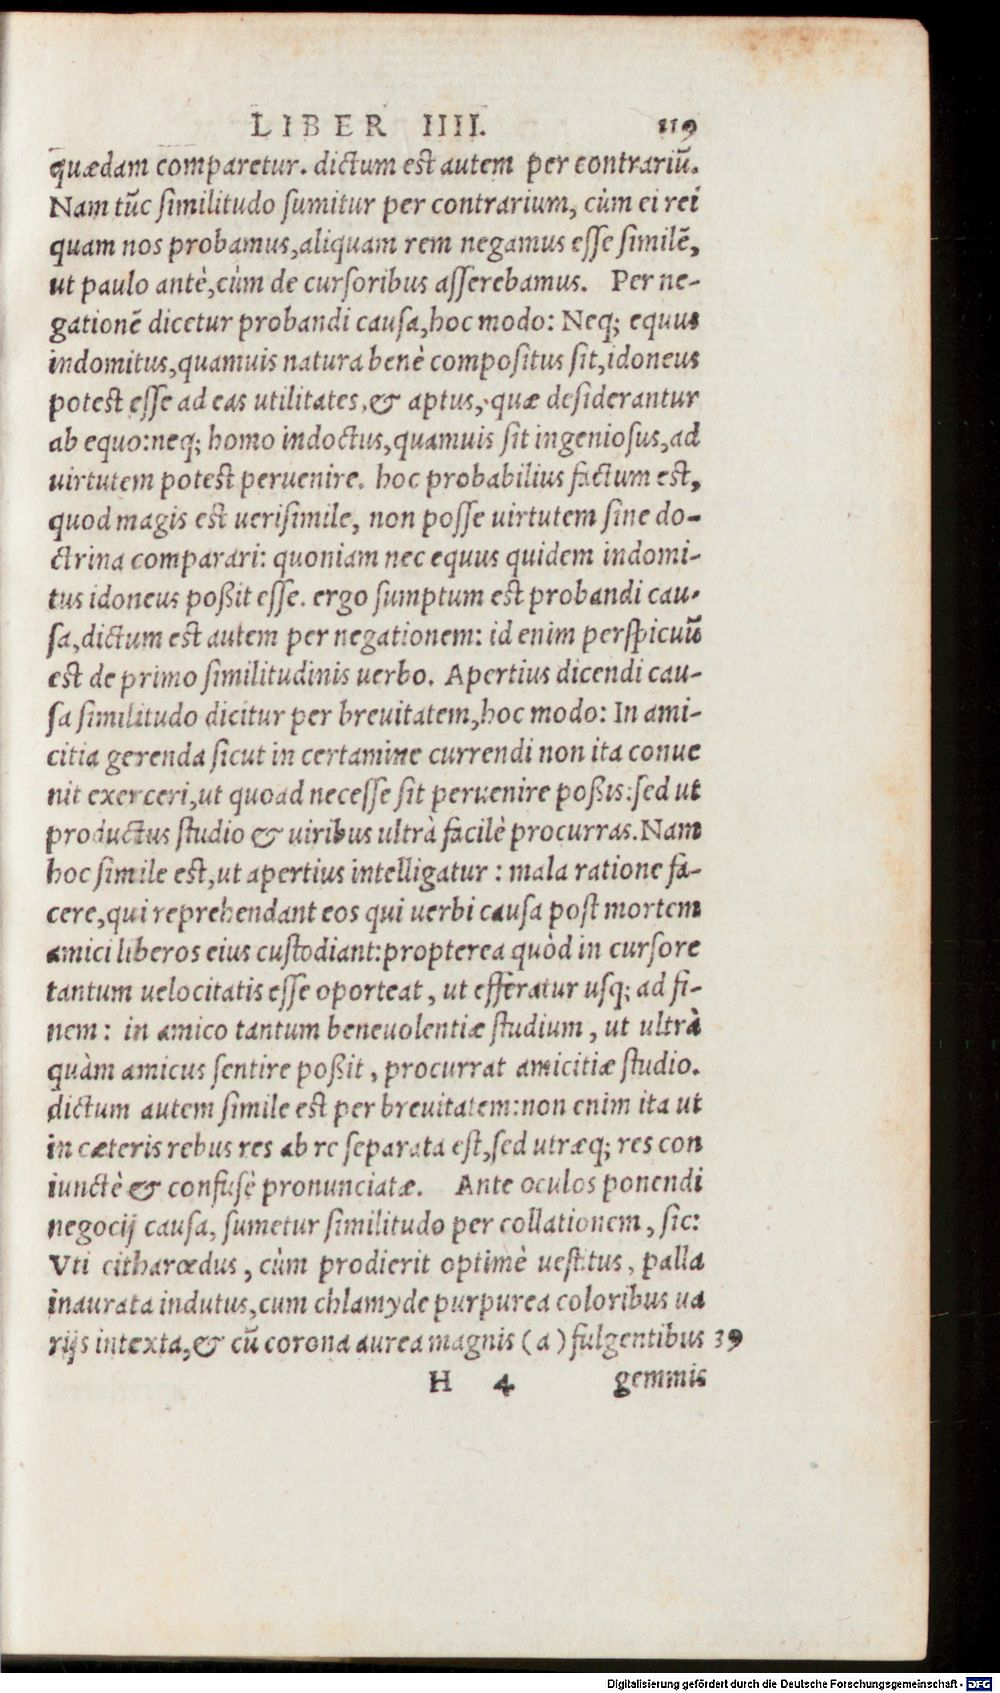 LIBER IIII. 119
quædam comparetur. dictum est autem per contrariũ.
Nam tũc similitudo sumitur per contrarium, cùm ei rei
quam nos probamus, aliquam rem negamus esse similẽ,
ut paulo antè, cùm de cursoribus asserebamus. Per ne-
gationẽ dicetur probandi causa, hoc modo: Neq; equus
indomitus, quamuis natura benè compositus sit, idoneus
potest esse ad eas utilitates, & aptus, quæ desiderantur
ab equo: neq; homo indoctus, quamuis sit ingeniosus, ad
uirtutem potest peruenire. hoc probabilius factum est,
quod magis est uerisimile, non posse uirtutem sine do-
ctrina comparari: quoniam nec equus quidem indomi-
tus idoneus poßit esse. ergo sumptum est probandi cau-
sa, dictum est autem per negationem: id enim perspicuũ
est de primo similitudinis uerbo. Apertius dicendi cau-
sa similitudo dicitur per breuitatem, hoc modo: In ami-
citia gerenda sicut in certamine currendi non ita conue
nit exerceri, ut quoad necesse sit peruenire poßis: sed ut
productus studio & uiribus ultrà facilè procurras. Nam
hoc simile est, ut apertius intelligatur: mala ratione fa-
cere, qui reprehendant eos qui uerbi causa post mortem
amici liberos eius custodiant: propterea quòd in cursore
tantum uelocitatis esse oporteat, ut efferatur usq; ad fi-
nem: in amico tantum beneuolentiæ studium, ut ultrà
quàm amicus sentire poßit, procurrat amicitiæ studio.
dictum autem simile est per breuitatem: non enim ita ut
in cæteris rebus res ab re separata est, sed utræq; res con
iunctè & confusè pronunciatæ. Ante oculos ponendi
negocij causa, sumetur similitudo per collationem, sic:
Vti citharœdus, cùm prodierit optimè uestitus, palla
inaurata indutus, cum chlamyde purpurea coloribus ua
rijs intexta, & cũ corona aurea magnis (a) fulgentibus 39
H 4 gemmis
Digitalisierung gefördert durch die Deutsche Forschungsgemeinschaft - DFG